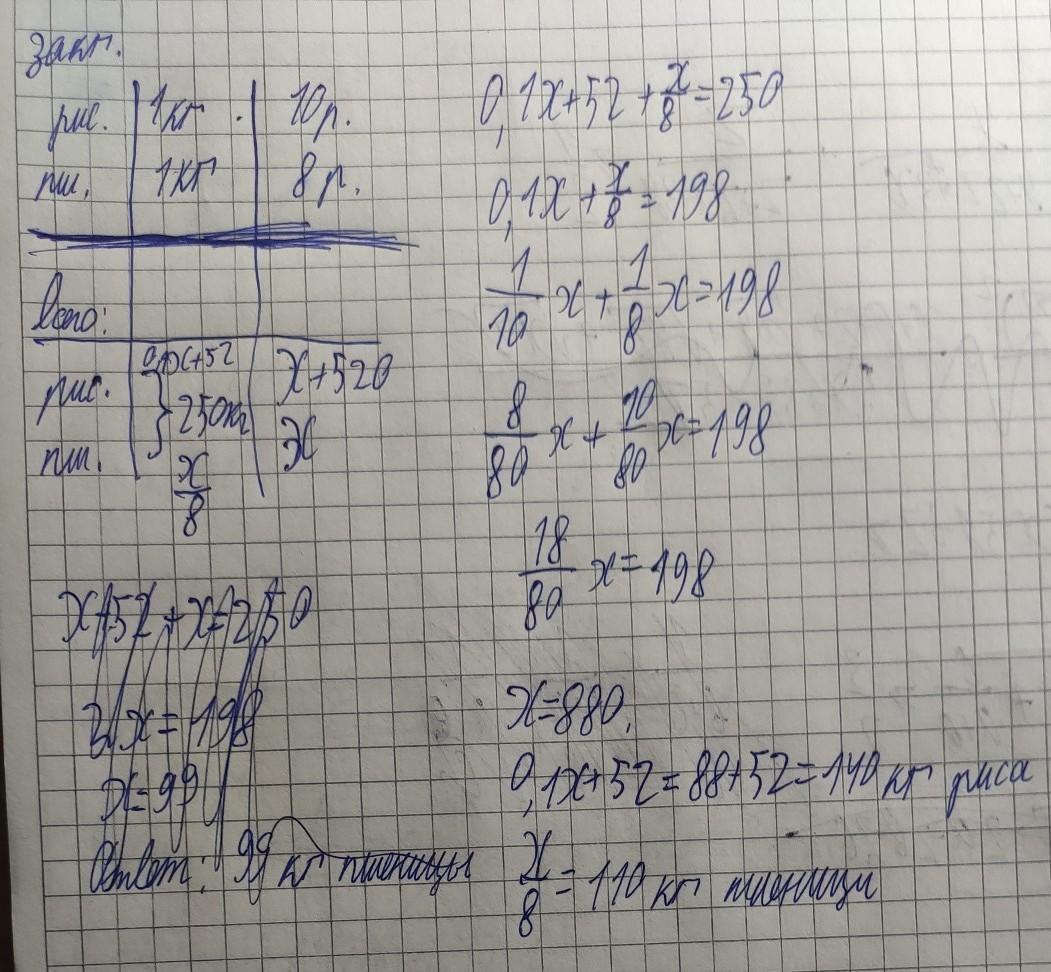 закп.
рис. 1кг . 10р.
пш. 1кг 8р.
Всего:
рис. 0,1x+52 x+520
250кг
пш. x
x/8
x+52+x=250
2x=198
x=99
Ответ: 99 кг пшеницы
0,1x+52+x/8=250
0,1x+x/8=198
1/10 x+1/8 x=198
8/80 x+10/80 x=198
18/80 x=198
x=880,
0,1x+52=88+52=140 кг риса
x/8=110 кг пшеници